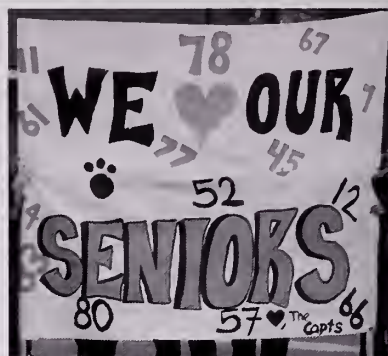 78 67
11
WE ♥ OUR 7
61
77 45
52 12
4
SENIORS
80 57 ♥, The Capts 66